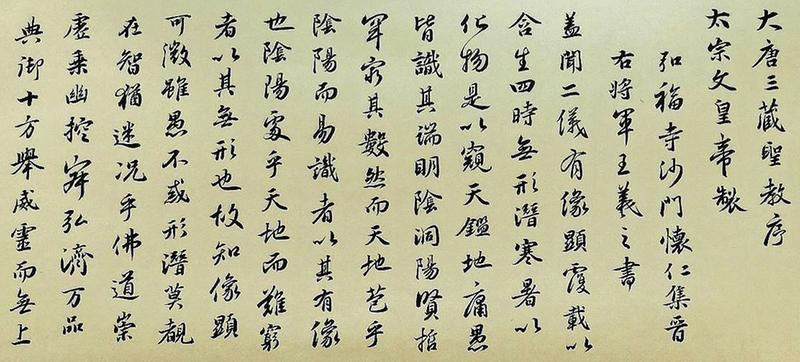 大唐三藏聖教序
太宗文皇帝製
弘福寺沙門懷仁集晉
右將軍王羲之書
蓋聞二儀有像顯覆載以
含生四時無形潛寒暑以
化物是以窺天鑑地庸愚
皆識其端明陰洞陽賢哲
罕窮其數然而天地苞乎
陰陽而易識者以其有像
也陰陽處乎天地而難窮
者以其無形也故知像顯
可徵雖愚不惑形潛莫覩
在智猶迷况乎佛道崇
虛乘幽控寂弘濟万品
典御十方舉威靈而無上